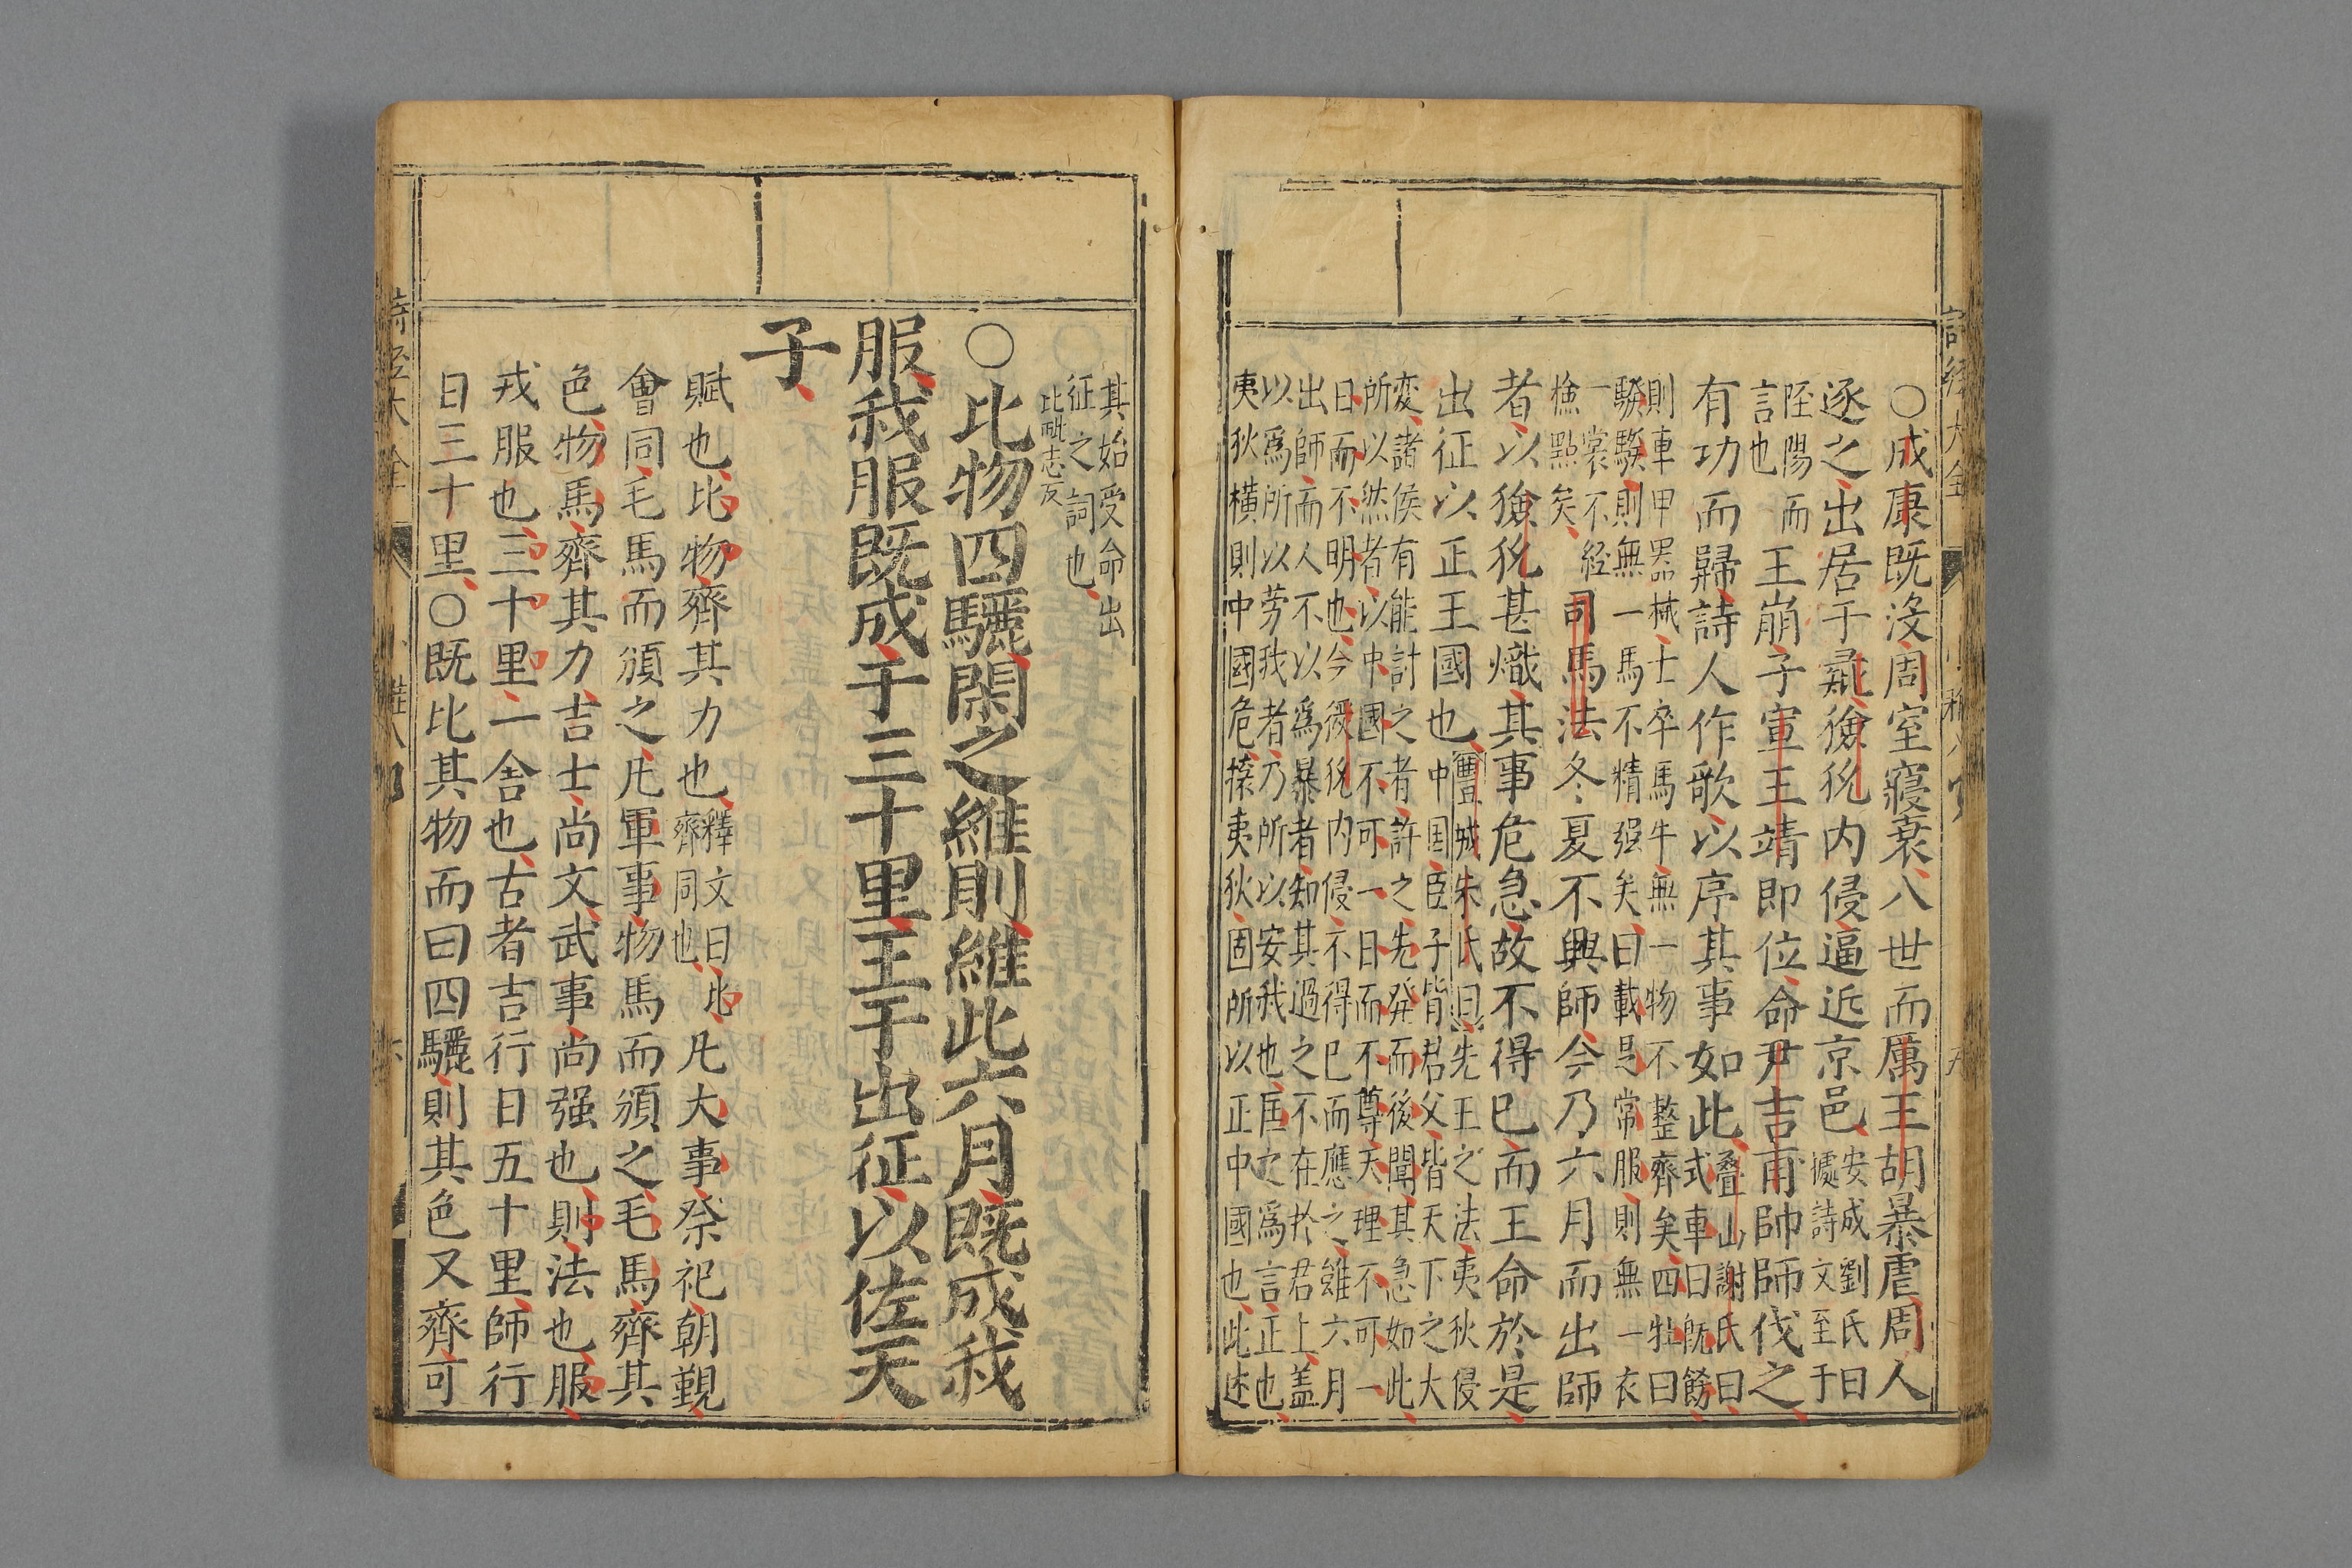 〇成康既没周室寢衰八世而厲王胡暴虐周人
逐之出居于彘玁狁内侵逼近京邑安成劉氏曰
據詩文至于
陘陽而
言也
王崩子宣王靖即位命尹吉甫帥師伐之
有功而歸詩人作歌以序其事如此疊山謝氏曰
式車曰既飭
則車甲器械士卒馬牛無一物不整齊矣四牡曰
騤騤則無一馬不精强矣曰載是常服則無一衣
一裳不経
檢點矣
司馬法冬夏不興師今乃六月而出師
者以玁狁甚熾其事危急故不得已而王命於是
出征以正王國也豐城朱氏曰先王之法夷狄侵
中国臣子背君父皆天下之大
変諸侯有能討之者許之先発而後聞其急如此
所以然者以中國不可一日而不尊天理不可一
日而不明也今玁狁内侵不得已而應之雖六月
出師而人不以為暴者知其過之不在於君上盖
以為所以劳我者乃所以安我也匡之為言正也
夷狄橫則中國危攘夷狄固所以正中國也此述
其始受命出
征之詞也
比毗志反
〇比物四驪閑之維則維此六月既成我
服我服既成于三十里王于出征以佐天
子
賦也比物齊其力也釋文曰比
齊同也
凡大事祭祀朝覲
會同毛馬而頒之凡軍事物馬而頒之毛馬齊其
色物馬齊其力吉士尚文武事尚强也則法也服
戎服也三十里一舍也古者吉行日五十里師行
日三十里〇既比其物而曰四驪則其色又齊可